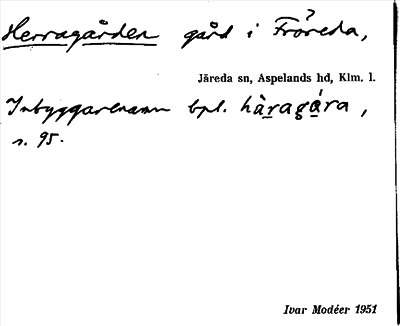 Herragården gård i Fröreda,
Järeda sn, Aspelands hd, Klm. l.
Inbyggarenamn bpl. hàragára,
s. 95.
Ivar Modéer 1951